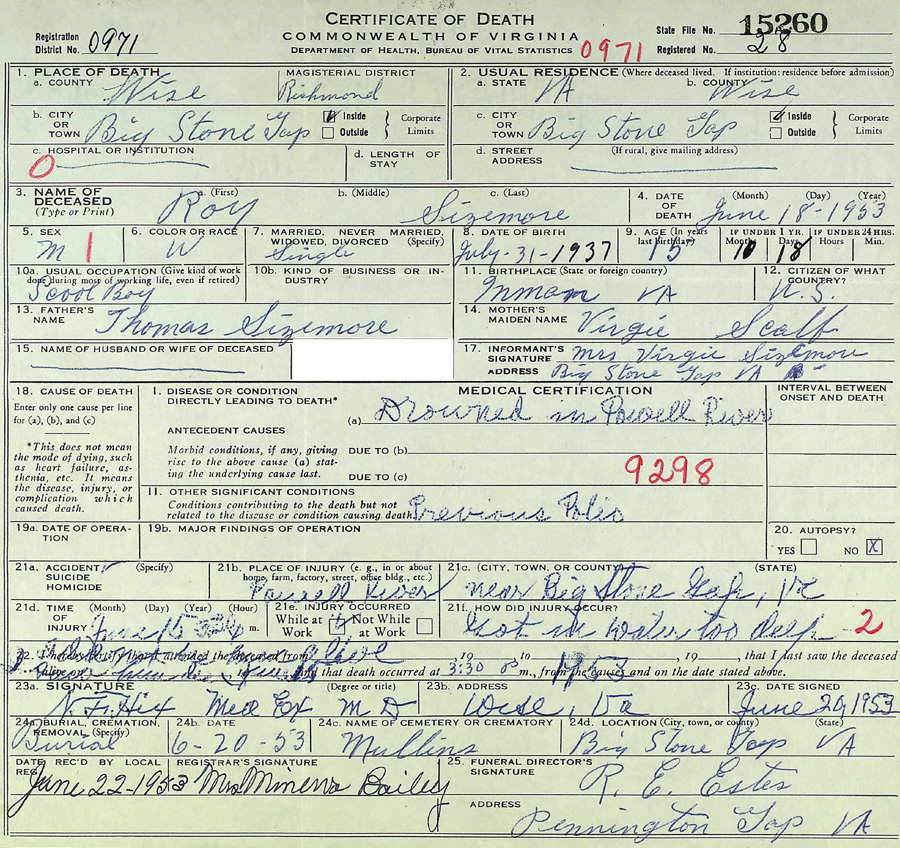 CERTIFICATE OF DEATH
COMMONWEALTH OF VIRGINIA
DEPARTMENT OF HEALTH, BUREAU OF VITAL STATISTICS 0971
Registration District No. 0971
State File No. 15260
Registered No. 28
1. PLACE OF DEATH
a. COUNTY Wise
MAGISTERIAL DISTRICT Richmond
2. USUAL RESIDENCE (Where deceased lived. If institution: residence before admission)
a. STATE VA b. COUNTY Wise
b. CITY OR TOWN Big Stone Gap Inside Outside Corporate Limits
c. CITY OR TOWN Big Stone Gap Inside Outside Corporate Limits
c. HOSPITAL OR INSTITUTION
0
d. LENGTH OF STAY
d. STREET ADDRESS (If rural, give mailing address)
3. NAME OF DECEASED (Type or Print)
a. (First) Roy b. (Middle) c. (Last) Sizemore
4. DATE OF DEATH (Month) (Day) (Year) June 18-1953
5. SEX M 1
6. COLOR OR RACE W
7. MARRIED, NEVER MARRIED, WIDOWED, DIVORCED (Specify) Single
8. DATE OF BIRTH July-31-1937
9. AGE (In years last birthday) 15 IF UNDER 1 YR. Months 10 Days 18 IF UNDER 24 HRS. Hours Min.
10a. USUAL OCCUPATION (Give kind of work done during most of working life, even if retired) Scool Boy
10b. KIND OF BUSINESS OR INDUSTRY
11. BIRTHPLACE (State or foreign country) Inman VA
12. CITIZEN OF WHAT COUNTRY? U.S.
13. FATHER'S NAME Thomas Sizemore
14. MOTHER'S MAIDEN NAME Virgie Scalf
15. NAME OF HUSBAND OR WIFE OF DECEASED
17. INFORMANT'S SIGNATURE Mrs Virgie Sizemore
ADDRESS Big Stone Gap VA
18. CAUSE OF DEATH
Enter only one cause per line for (a), (b), and (c)
*This does not mean the mode of dying, such as heart failure, asthenia, etc. It means the disease, injury, or complication which caused death.
MEDICAL CERTIFICATION
INTERVAL BETWEEN ONSET AND DEATH
I. DISEASE OR CONDITION DIRECTLY LEADING TO DEATH*
(a) Drowned in Powell River
ANTECEDENT CAUSES
Morbid conditions, if any, giving rise to the above cause (a) stating the underlying cause last.
DUE TO (b)
DUE TO (c)
9298
11. OTHER SIGNIFICANT CONDITIONS
Conditions contributing to the death but not related to the disease or condition causing death. Previous Polio
19a. DATE OF OPERATION
19b. MAJOR FINDINGS OF OPERATION
20. AUTOPSY?
YES NO X
21a. ACCIDENT SUICIDE HOMICIDE (Specify)
21b. PLACE OF INJURY (e. g., in or about home, farm, factory, street, office bldg., etc.) Powell River
21c. (CITY, TOWN, OR COUNTY) (STATE) near Big Stone Gap, Va
21d. TIME OF INJURY (Month) (Day) (Year) (Hour) m.
21e. INJURY OCCURRED While at Work Not While at Work
21f. HOW DID INJURY OCCUR? Got in water too deep 2
22. I hereby certify that I attended the deceased from , 19 , to , 19 , that I last saw the deceased
alive on , and that death occurred at 3:30 P m., from the cause and on the date stated above.
23a. SIGNATURE (Degree or title) N. F. Hix Med Ex M D
23b. ADDRESS Wise, Va
23c. DATE SIGNED June 20, 1953
24a. BURIAL, CREMATION, REMOVAL (Specify) Burial
24b. DATE 6-20-53
24c. NAME OF CEMETERY OR CREMATORY Mullins
24d. LOCATION (City, town, or county) (State) Big Stone Gap VA
DATE REC'D BY LOCAL REG. June 22-1953
REGISTRAR'S SIGNATURE Mrs Minerva Bailey
25. FUNERAL DIRECTOR'S SIGNATURE R. E. Estes
ADDRESS Pennington Gap VA